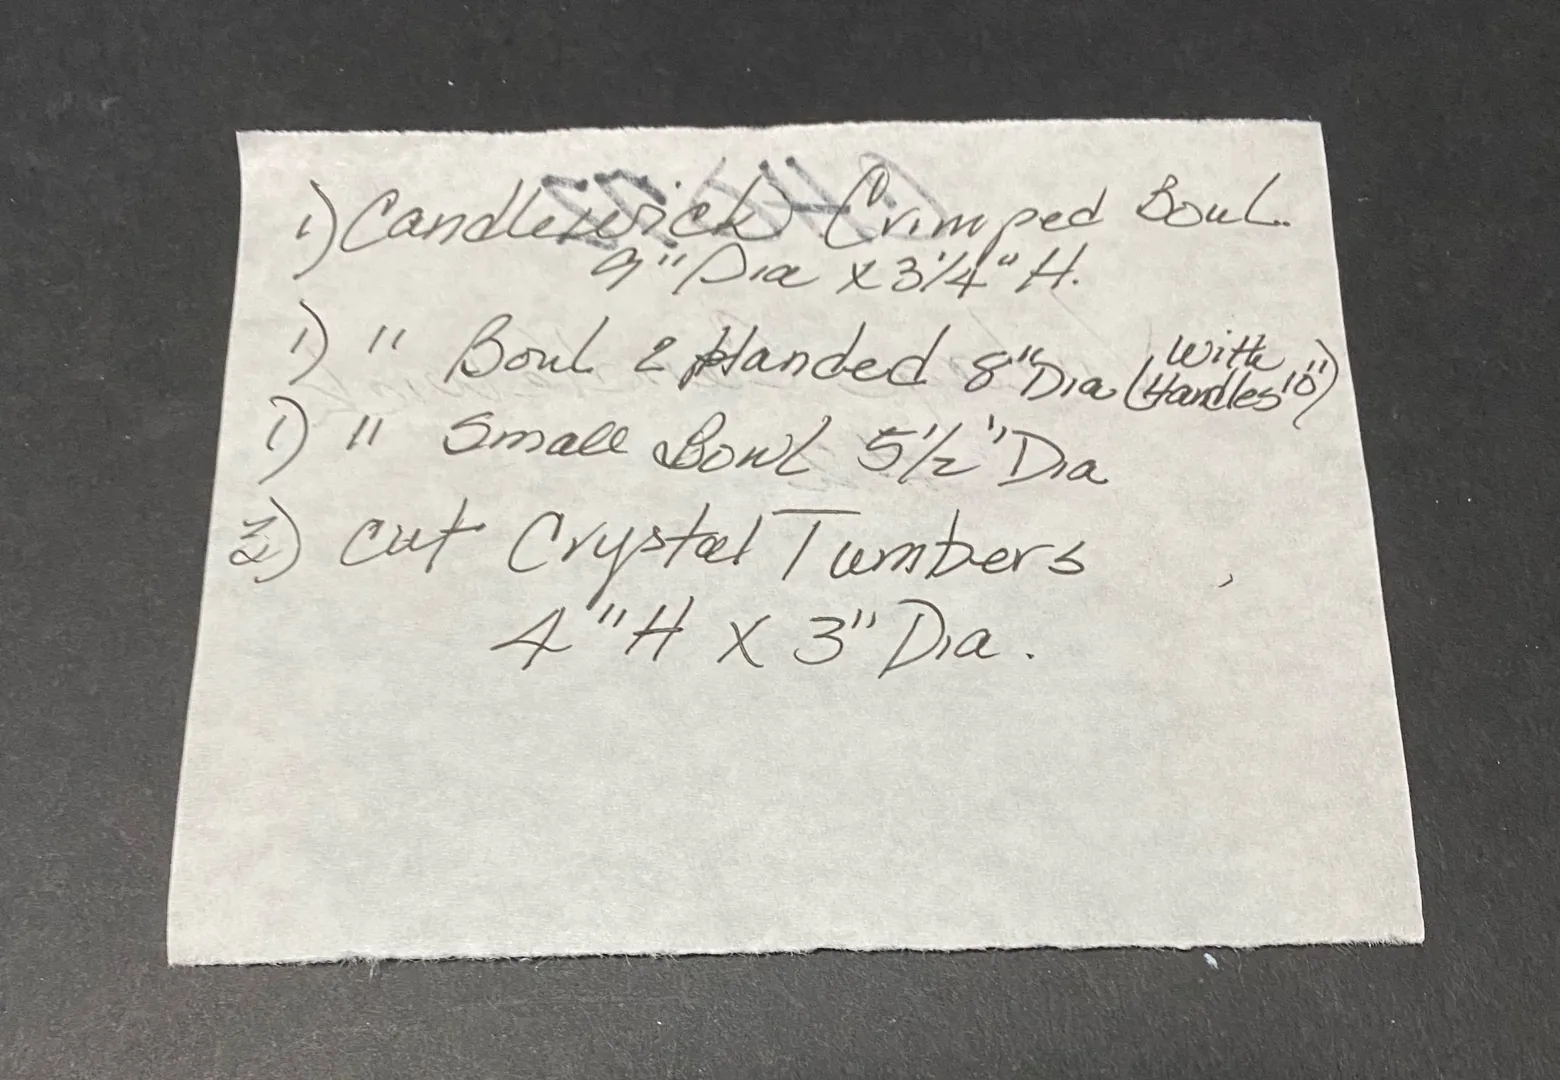 1) Candlewick Crimped Bowl.
9" Dia x 3 1/4" H.
1) " Bowl 2 Handed 8" Dia (With Handles 10")
1) " Small Bowl 5 1/2" Dia
2) Cut Crystal Tumbers
4" H X 3" Dia.